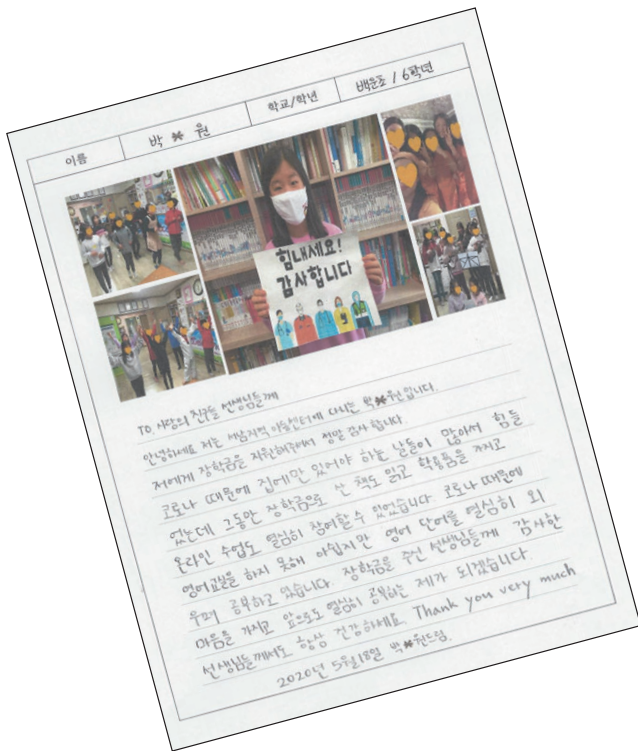 이름 박 * 원 학교/학년 백운초 / 6학년
힘내세요!
감사합니다
TO 사랑의 친구들 선생님들께
안녕하세요 저는 해남지역 아동센터에 다니는 박*원입니다.
저에게 장학금을 지원해주셔서 정말 감사 합니다.
코로나 때문에 집에만 있어야 하는 날들이 많아서 힘들
었는데 그동안 장학금으로 산 책도 읽고 학용품을 가지고
온라인 수업도 열심히 참여할수 있었습니다. 코로나 때문에
영어교실을 하지 못해 아쉽지만 영어 단어를 열심히 외
우며 공부하고 있습니다. 장학금을 주신 선생님들께 감사한
마음을 가지고 앞으로도 열심히 공부하는 제가 되겠습니다.
선생님들께서도 항상 건강하세요. Thank you very much
2020년 5월18일 박*원드림.